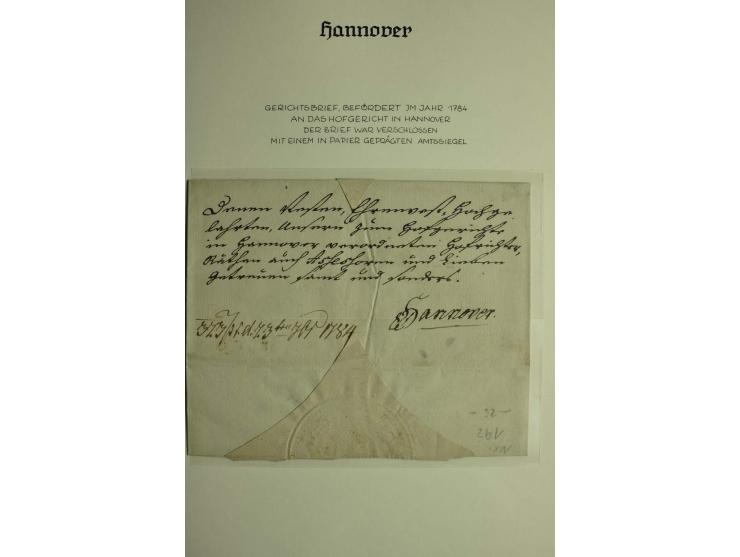 Hannover
GERICHTSBRIEF, BEFÖRDERT JM JAHR 1784
AN DAS HOFGERICHT IN HANNOVER
DER BRIEF WAR VERSCHLOSSEN
MIT EINEM IN PAPIER GEPRÄGTEN AMTSSIEGEL
Denen Vesten, Ehrenvest-, Hochge
lahrten, Unsern zum Hofgerichte
in Hannover verordneten Hofrichter,
Räthen auch Assessoren und Lieben
Getreuen samt und sonders.
Hannover.
d. 23ten 7br 1784
- 25 -
192